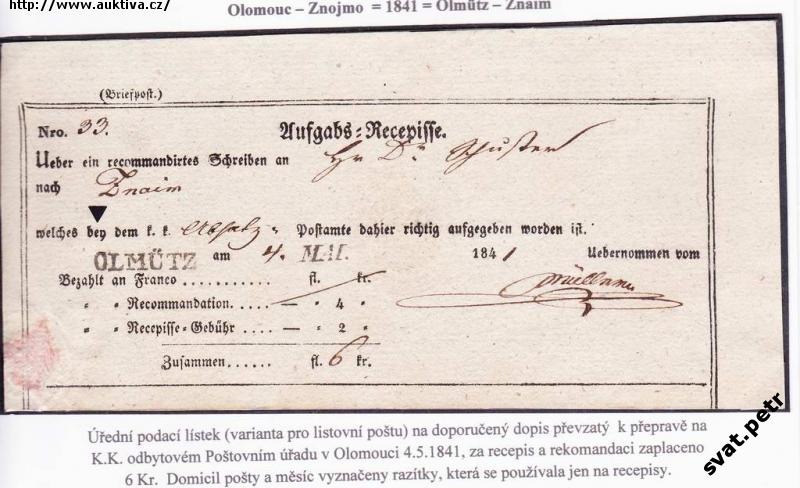 http://www.auktiva.cz/
Olomouc – Znojmo = 1841 = Olmütz – Znaim
(Briefpost.)
Nro. 33. Aufgabs-Recepisse.
Ueber ein recommandirtes Schreiben an Hr Dr Schuster
nach Znaim
welches bey dem k. k. Absatz- Postamte dahier richtig aufgegeben worden ist.
OLMÜTZ am 4. MAI. 1841 Uebernommen vom
Bezahlt an Franco ........... fl. kr.
" " Recommandation. — " 4 "
" " Recepisse-Gebühr .... — " 2 "
Zusammen...... fl. 6 kr.
Úřední podací lístek (varianta pro listovní poštu) na doporučený dopis převzatý k přepravě na
K.K. odbytovém Poštovním úřadu v Olomouci 4.5.1841, za recepis a rekomandaci zaplaceno
6 Kr. Domicil pošty a měsíc vyznačeny razítky, která se používala jen na recepisy.
svat.petr